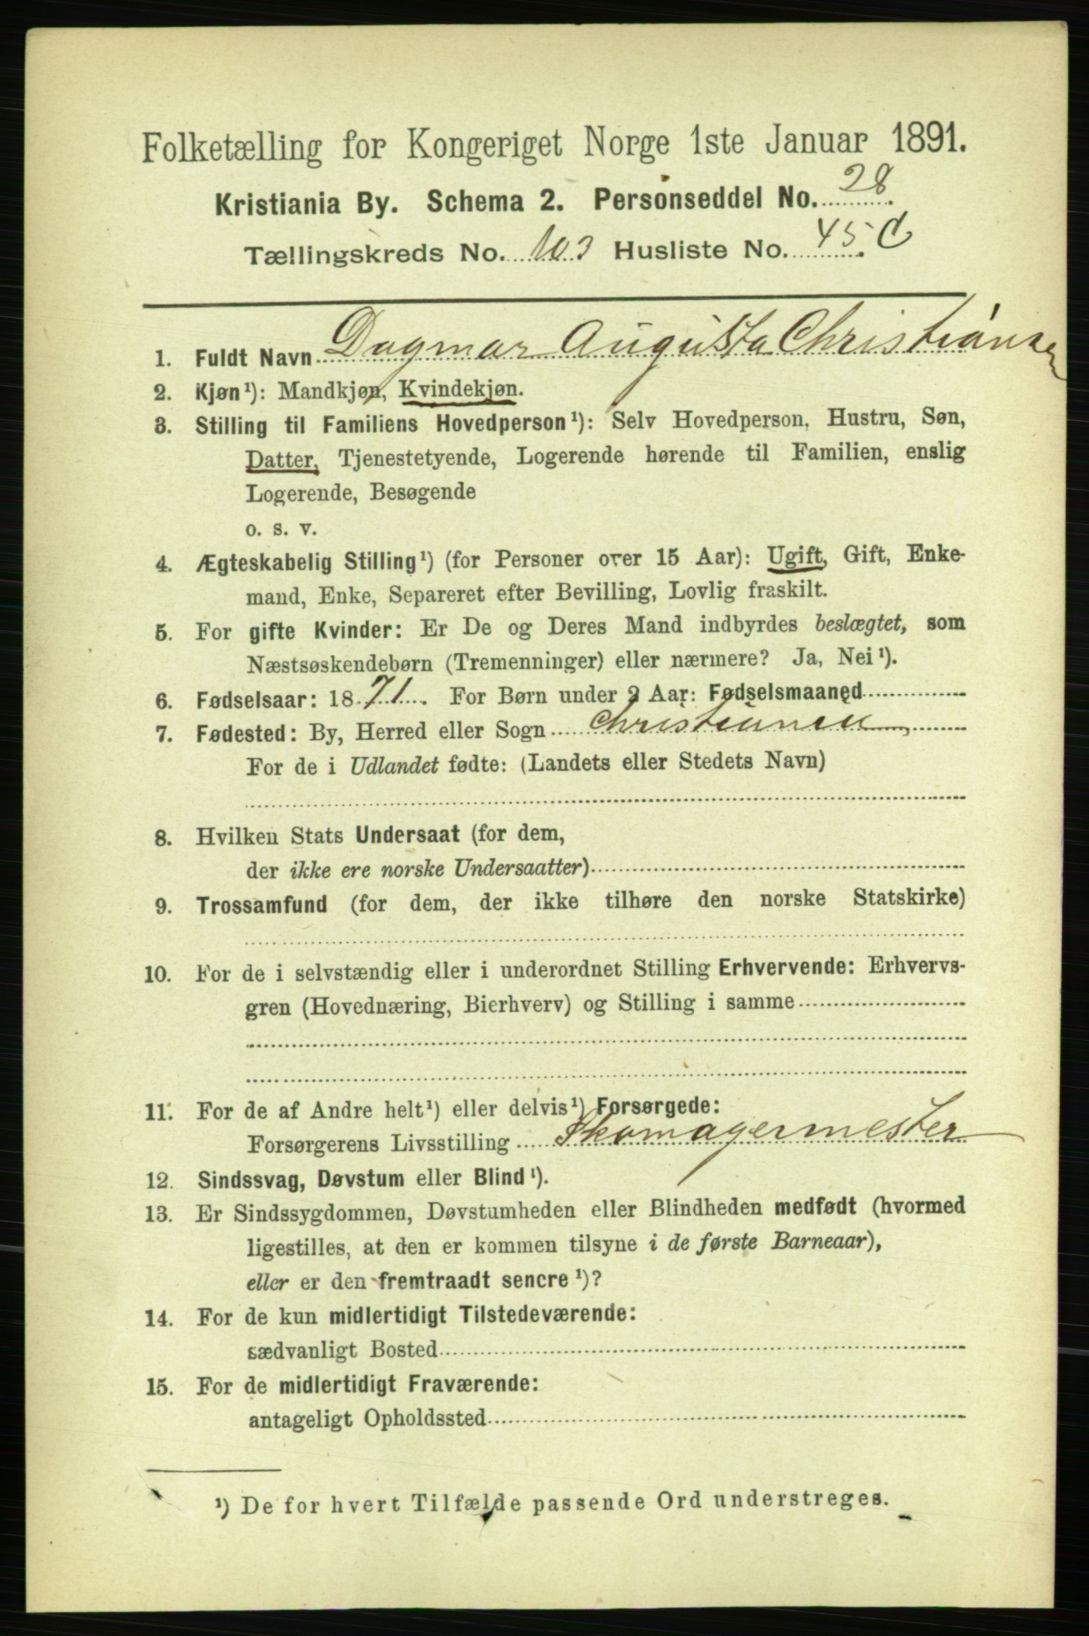 Folketælling for Kongeriget Norge 1ste Januar 1891.
Kristiania By. Schema 2. Personseddel No. 28.
Tællingskreds No. 103 Husliste No. 45 d
1. Fuldt Navn Dagmar Augusta Christiansen
2. Kjøn¹): Mandkjøn, Kvindekjøn.
3. Stilling til Familiens Hovedperson¹): Selv Hovedperson, Hustru, Søn,
Datter, Tjenestetyende, Logerende hørende til Familien, enslig
Logerende, Besøgende
o. s. v.
4. Ægteskabelig Stilling¹) (for Personer over 15 Aar): Ugift, Gift, Enke-
mand, Enke, Separeret efter Bevilling, Lovlig fraskilt.
5. For gifte Kvinder: Er De og Deres Mand indbyrdes beslægtet, som
Næstsøskendebørn (Tremenninger) eller nærmere? Ja, Nei¹).
6. Fødselsaar: 1871. For Børn under 2 Aar: Fødselsmaaned
7. Fødested: By, Herred eller Sogn
For de i Udlandet fødte: (Landets eller Stedets Navn)
8. Hvilken Stats Undersaat (for dem,
der ikke ere norske Undersaatter)
9. Trossamfund (for dem, der ikke tilhøre den norske Statskirke)
10. For de i selvstændig eller i underordnet Stilling Erhvervende: Erhvervs-
gren (Hovednæring, Bierhverv) og Stilling i samme
11. For de af Andre helt¹) eller delvis¹) Forsørgede:
Forsørgerens Livsstilling Skomagermester
12. Sindssvag, Døvstum eller Blind¹).
13. Er Sindssygdommen, Døvstumheden eller Blindheden medfødt (hvormed
ligestilles, at den er kommen tilsyne i de første Barneaar),
eller er den fremtraadt sencre¹)?
14. For de kun midlertidigt Tilstedeværende:
sædvanligt Bosted
15. For de midlertidigt Fraværende:
antageligt Opholdssted
¹) De for hvert Tilfælde passende Ord understreges.